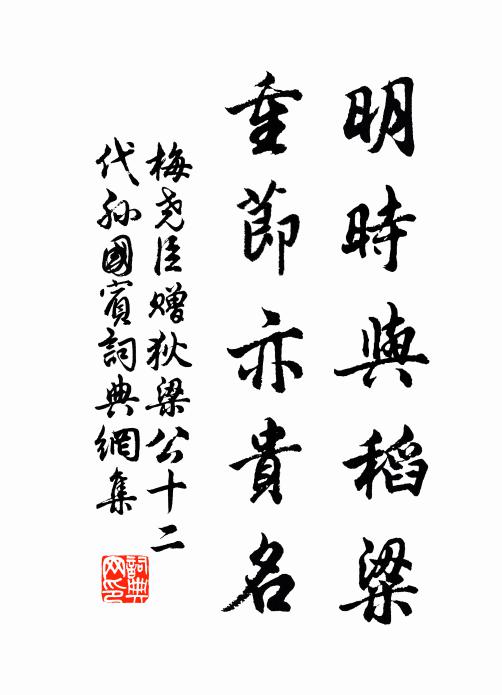 明時與稻粱
重節亦貴名
梅堯臣贈狄梁公十二
代孫國賓詞典網集
詞典
网印